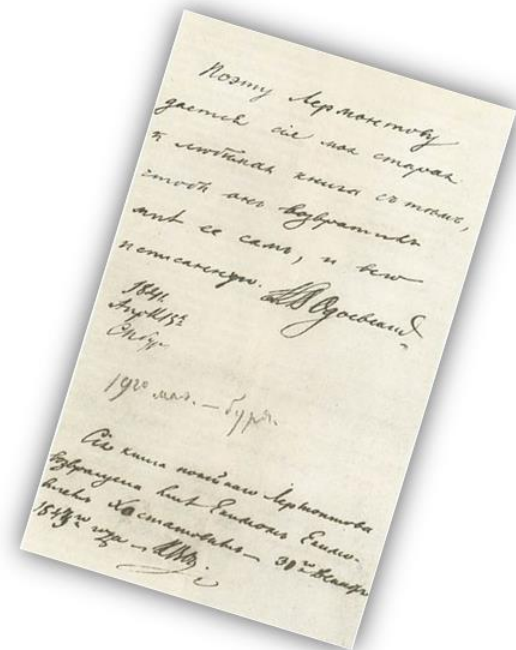 Поэту Лермонтову
дается сіе моя старая
и любимая книга съ тѣмъ,
чтобъ онъ возвратилъ
мнѣ ее самъ, и всю
исписанную. К В Одоевскій
1841.
Апреля 13е
СПбур
19го мая. — буря.
Сія книга покойнаго Лермонтова
возвращена мнѣ Екимомъ Екимо-
вичемъ Хастатовымъ — 30го Января
1843го года —